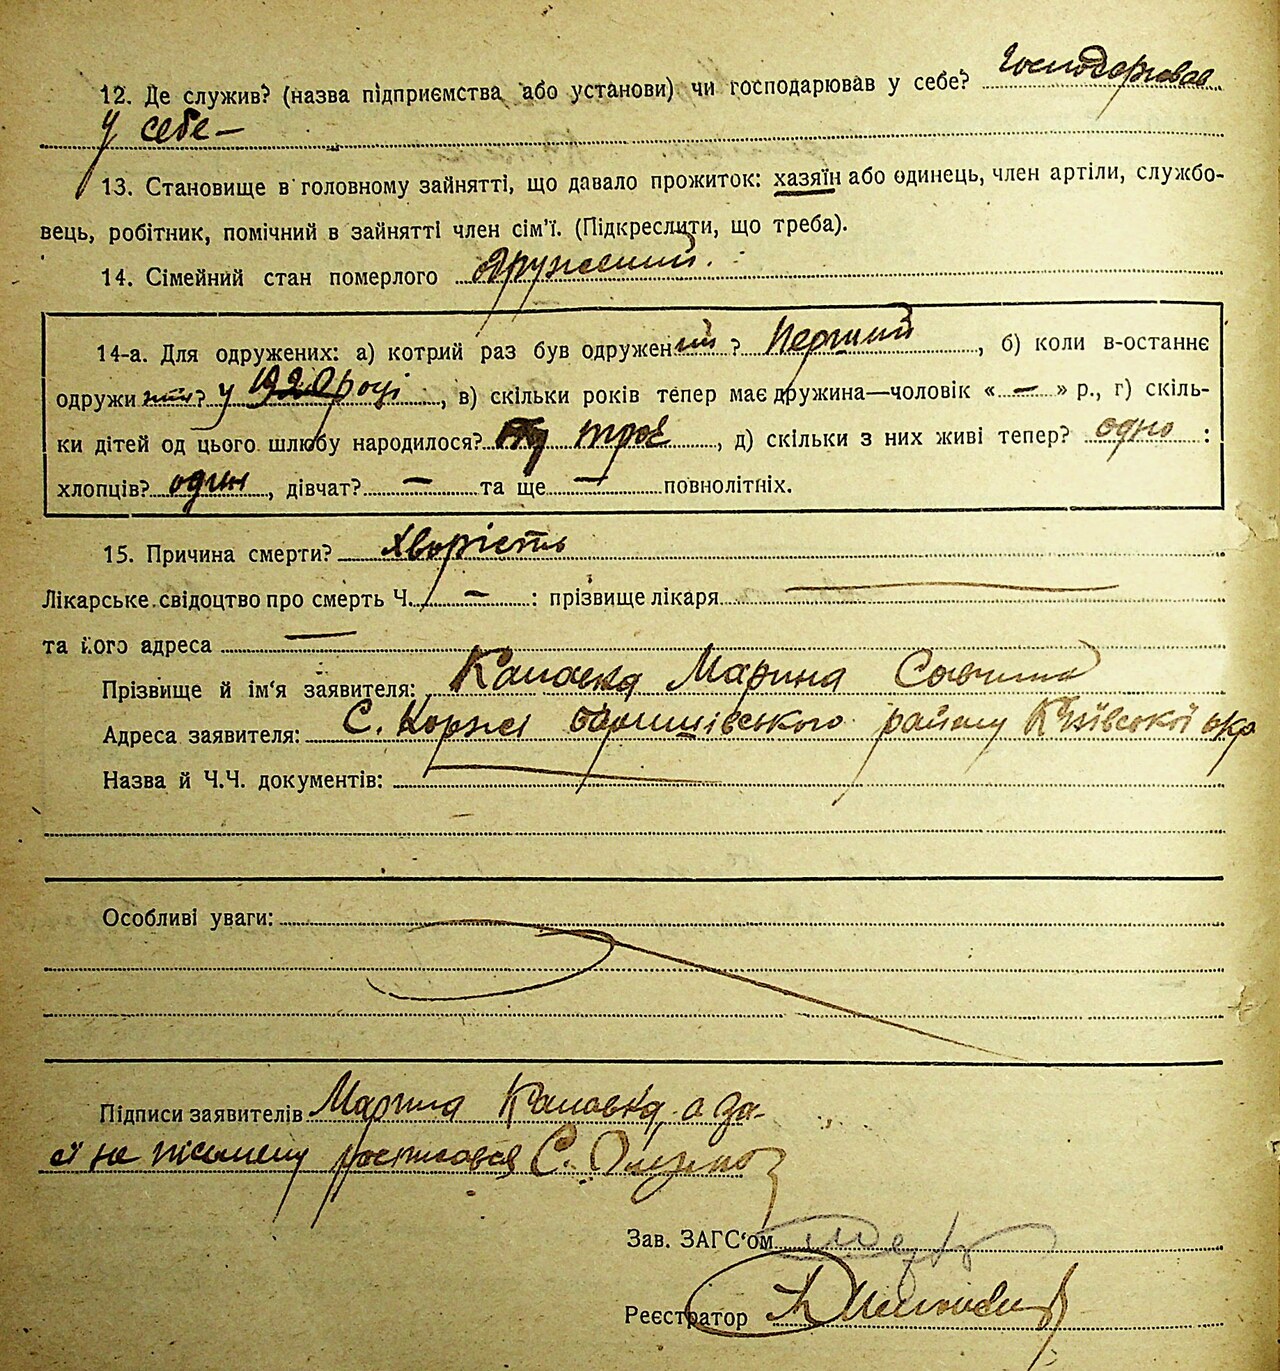 12. Де служив? (назва підприємства або установи) чи господарював у себе? Господарював
у себе –
13. Становище в головному зайнятті, що давало прожиток: хазяїн або одинець, член артіли, службо-
вець, робітник, помічний в зайнятті член сім'ї. (Підкреслити, що треба).
14. Сімейний стан померлого одружений.
14-а. Для одружених: а) котрий раз був одружений? Перший, б) коли в-останнє
одружи ? у 1920 році, в) скільки років тепер має дружина—чоловік «–» р., г) скіль-
ки дітей од цього шлюбу народилося? троє, д) скільки з них живі тепер? одно :
хлопців? один, дівчат? – та ще – повнолітніх.
15. Причина смерти? Хворість
Лікарське свідоцтво про смерть Ч. – : прізвище лікаря —
та його адреса —
Прізвище й ім'я заявителя: Марина
Адреса заявителя: С. Коржі Баришівського району Київської окр
Назва й Ч.Ч. документів: —
Особливі уваги:
Підписи заявителів Марина а за
неї не письмену росписався С.
Зав. ЗАГС'ом
Реєстратор